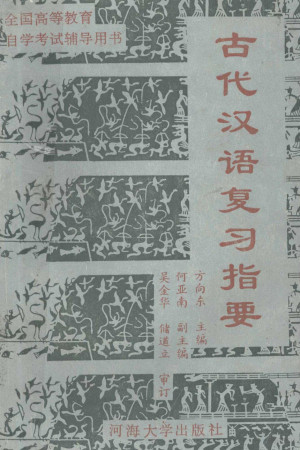 全国高等教育
自学考试辅导用书
古代汉语复习指要
方向东 主编
何亚南 副主编
吴金华 储道立 审订
河海大学出版社